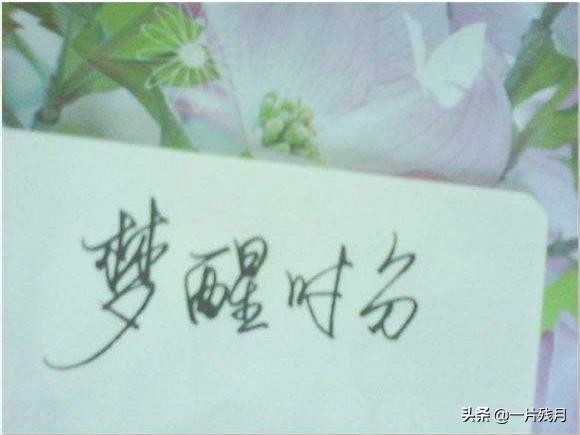 梦醒时分
头条 @一片残月